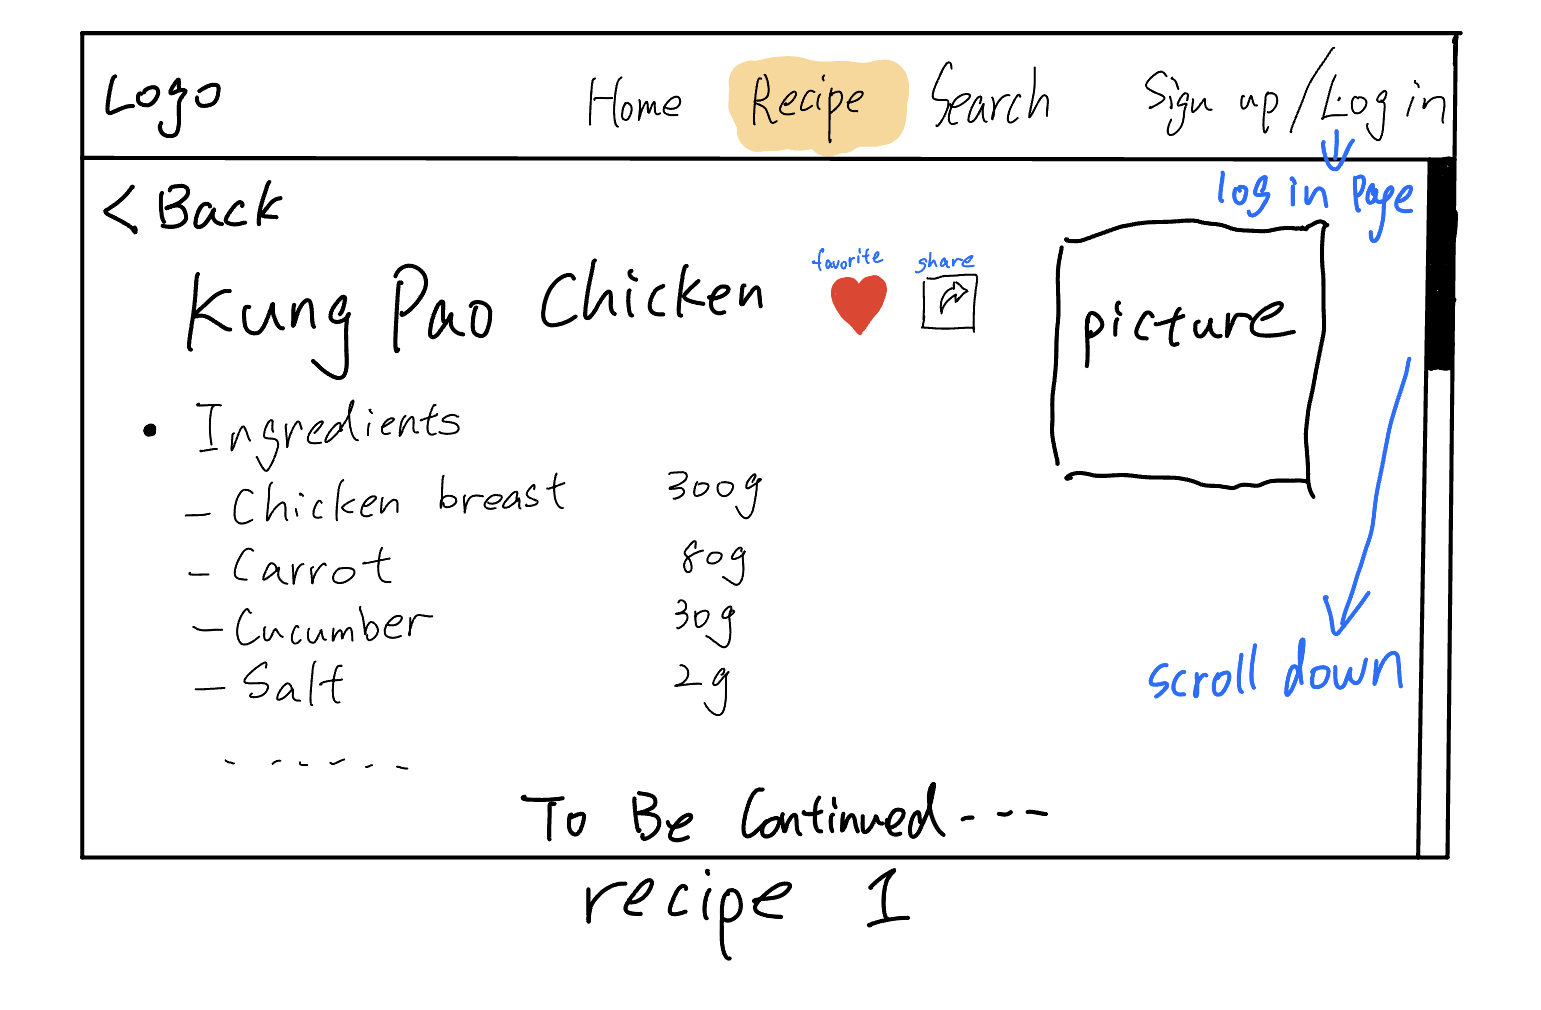 Logo Home Recipe Search Sign up / Log in
log in page
< Back
favorite share
Kung Pao Chicken
picture
• Ingredients
- Chicken breast 300g
- Carrot 80g
- Cucumber 30g
- Salt 2g
scroll down
------
To Be Continued---
recipe 1